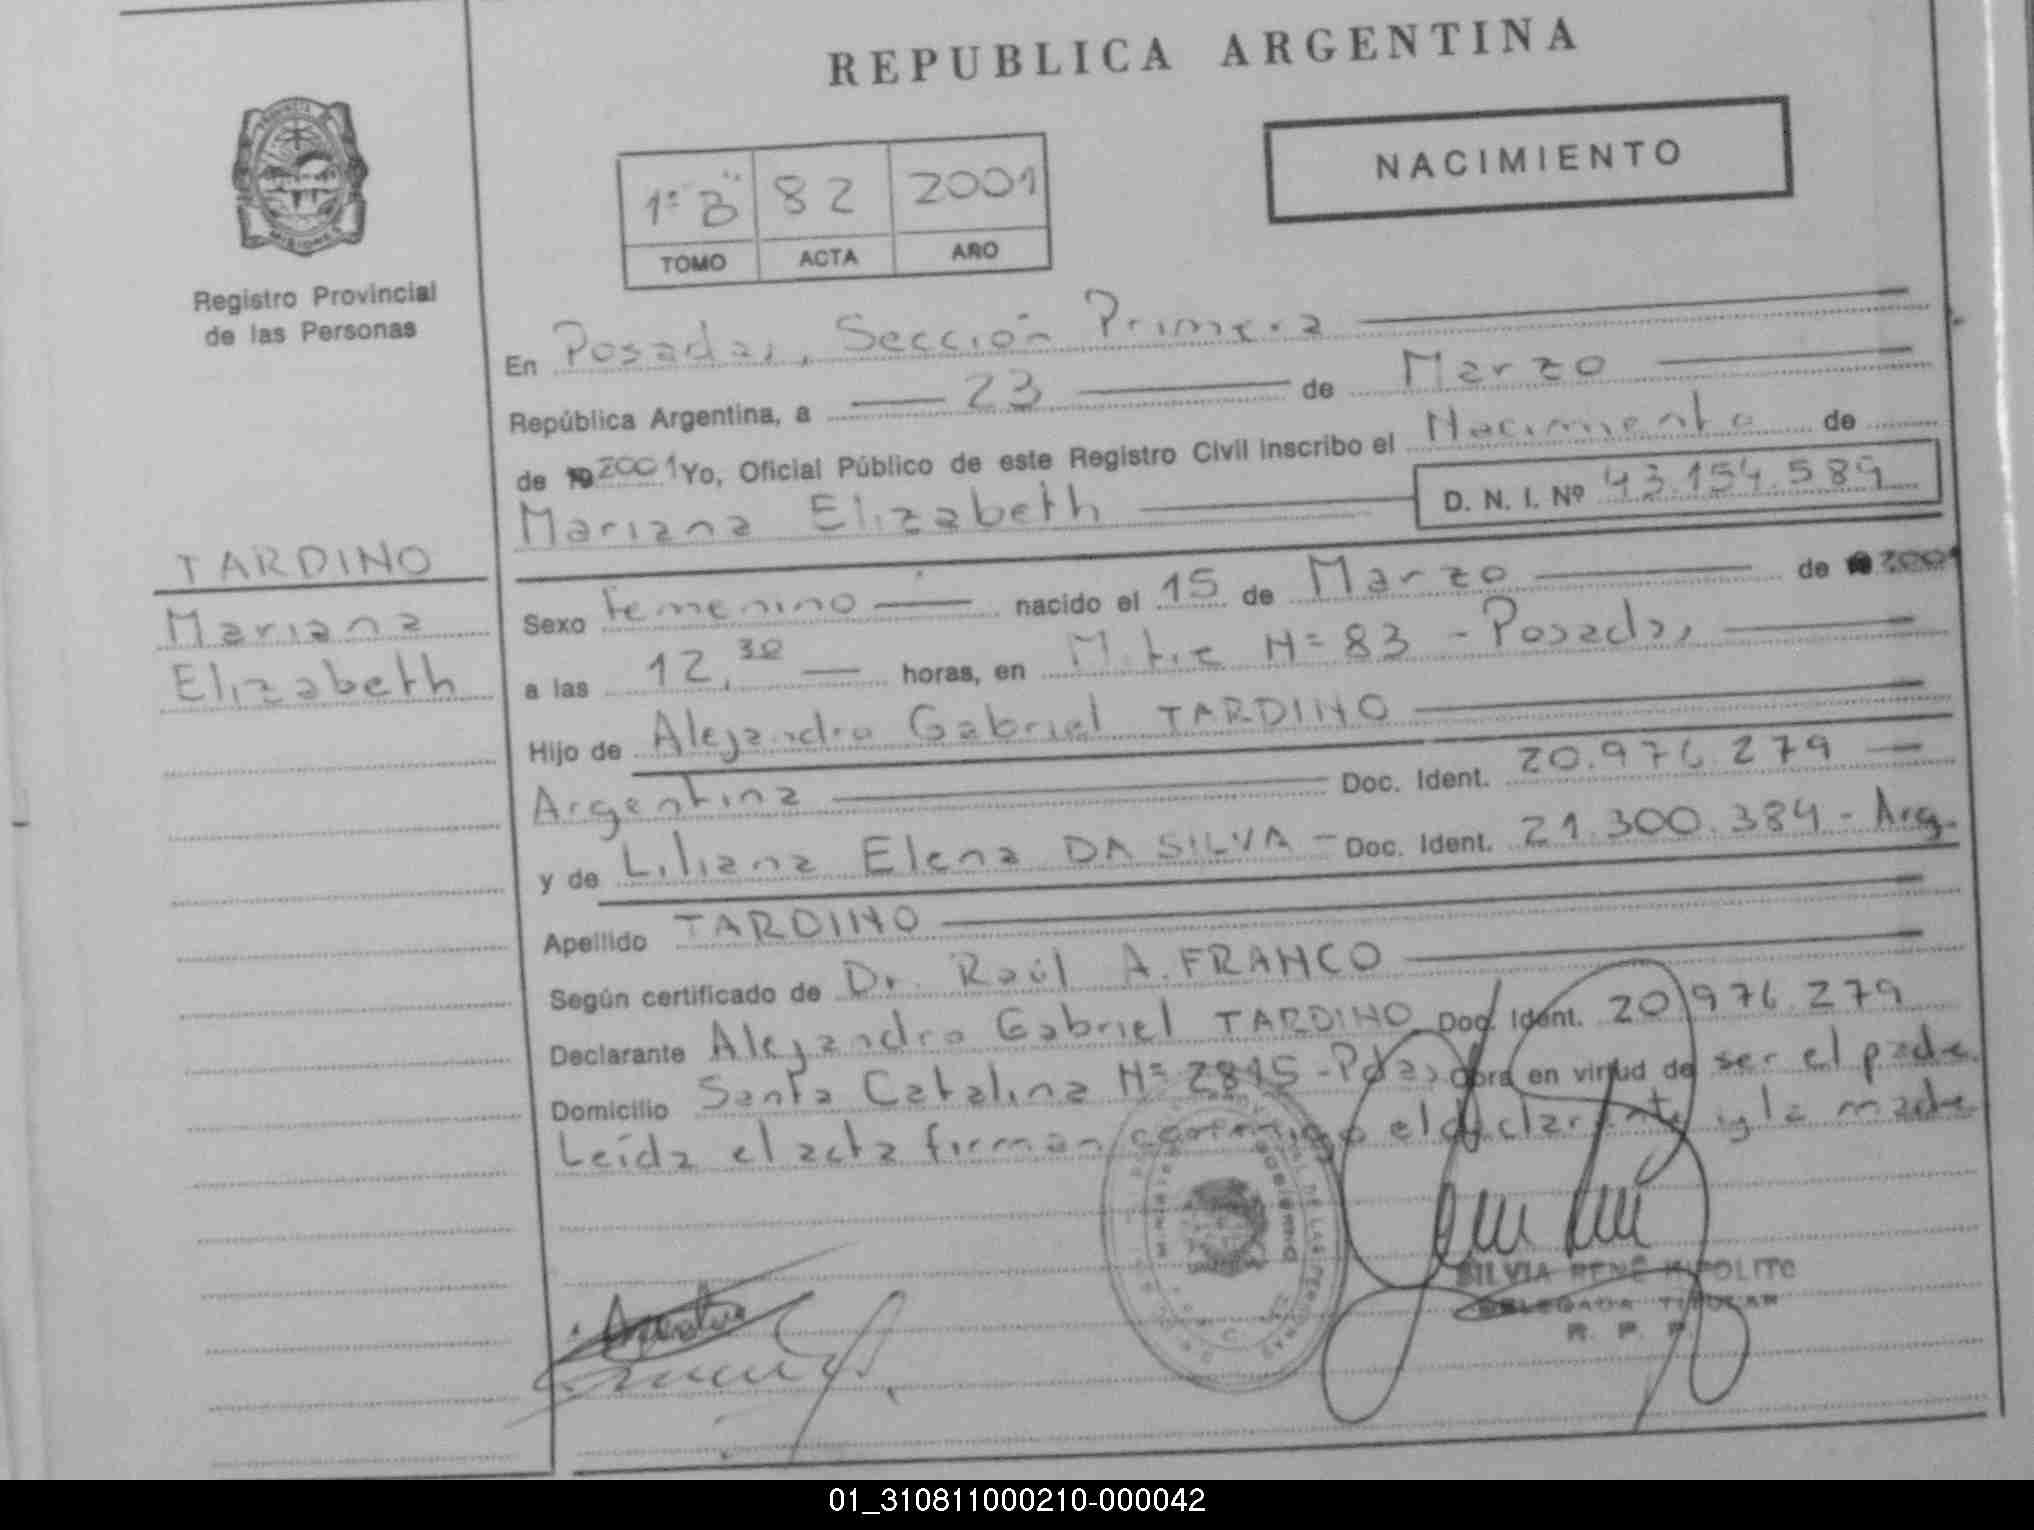 REPUBLICA ARGENTINA
NACIMIENTO
1º "B" 82 2001
TOMO ACTA AÑO
PROVINCIA
MISIONES
Registro Provincial
de las Personas
En Posadas, Sección Primera
República Argentina, a 23 de Marzo
de 2001 Yo, Oficial Público de este Registro Civil inscribo el Nacimiento de
Mariana Elizabeth D. N. I. Nº 43.154.589
TARDINO
Mariana
Elizabeth
Sexo femenino nacido el 15 de Marzo de 2001
a las 12,30 horas, en Mitre Nº 83 - Posadas
Hijo de Alejandro Gabriel TARDINO
Argentina Doc. Ident. 20.976.279
y de Liliana Elena DA SILVA - Doc. Ident. 21.300.384 - Arg.
Apellido TARDINO
Según certificado de Dr. Raúl A. FRANCO
Declarante Alejandro Gabriel TARDINO Doc. Ident. 20.976.279
Domicilio Santa Catalina Nº 2815 - Pdas Obra en virtud de ser el padre
Leída el acta firman conmigo el declarante y la madre
SILVIA RENÉ HIPOLITO
DELEGADA TITULAR
R. P. P.
01_310811000210-000042